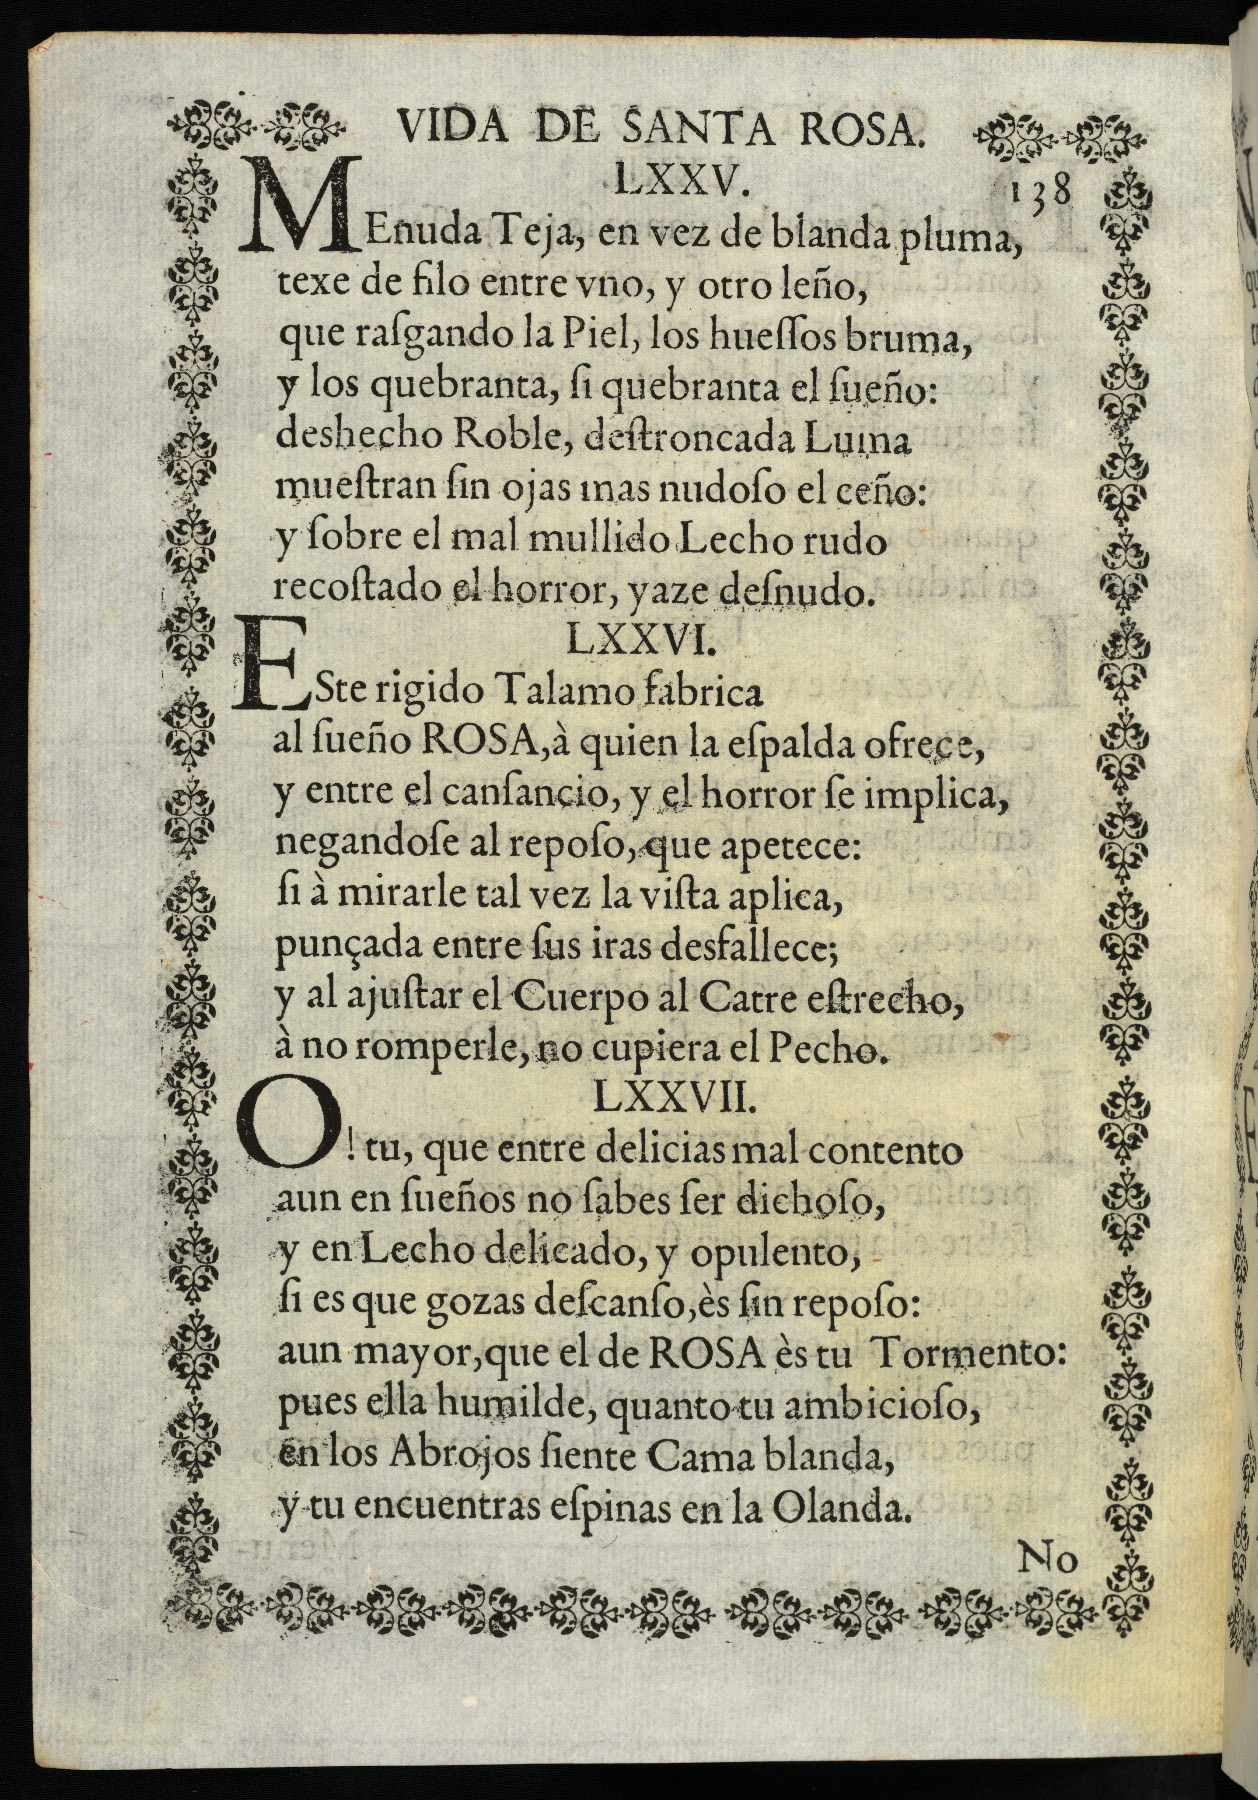 VIDA DE SANTA ROSA.
LXXV.
138
MEnuda Teja, en vez de blanda pluma,
texe de filo entre vno, y otro leño,
que raſgando la Piel, los hueſſos bruma,
y los quebranta, ſi quebranta el ſueño:
deshecho Roble, deſtroncada Luma
mueſtran ſin ojas mas nudoſo el ceño:
y ſobre el mal mullido Lecho rudo
recoſtado el horror, yaze deſnudo.
LXXVI.
ESte rigido Talamo fabrica
al ſueño ROSA, à quien la eſpalda ofrece,
y entre el canſancio, y el horror ſe implica,
negandoſe al repoſo, que apetece:
ſi à mirarle tal vez la viſta aplica,
punçada entre ſus iras desfallece;
y al ajuſtar el Cuerpo al Catre eſtrecho,
à no romperle, no cupiera el Pecho.
LXXVII.
O! tu, que entre delicias mal contento
aun en ſueños no ſabes ſer dichoſo,
y en Lecho delicado, y opulento,
ſi es que gozas deſcanſo, ès ſin repoſo:
aun mayor, que el de ROSA ès tu Tormento:
pues ella humilde, quanto tu ambicioſo,
en los Abrojos ſiente Cama blanda,
y tu encuentras eſpinas en la Olanda.
No